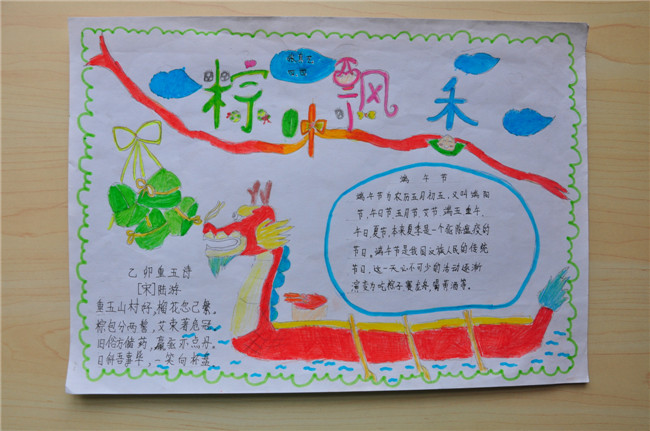 粽叶飘禾
端午节
端午节为农历五月初五,又叫端阳
节,午日节五月节、艾节 端五 重午、
午日、夏节,本来夏季是一个驱除瘟疫的
节日。端午节是我国汉族人民的传统
节日、这一天必不可少的活动逐渐
演变为吃粽子赛龙舟、葡萄酒等。
乙卯重五诗
[宋]陆游
重五山村好,榴花忽已繁。
粽包分两髻,艾束著危冠。
旧俗方储药,羸躯亦点丹。
日斜吾事毕,一笑向杯盘